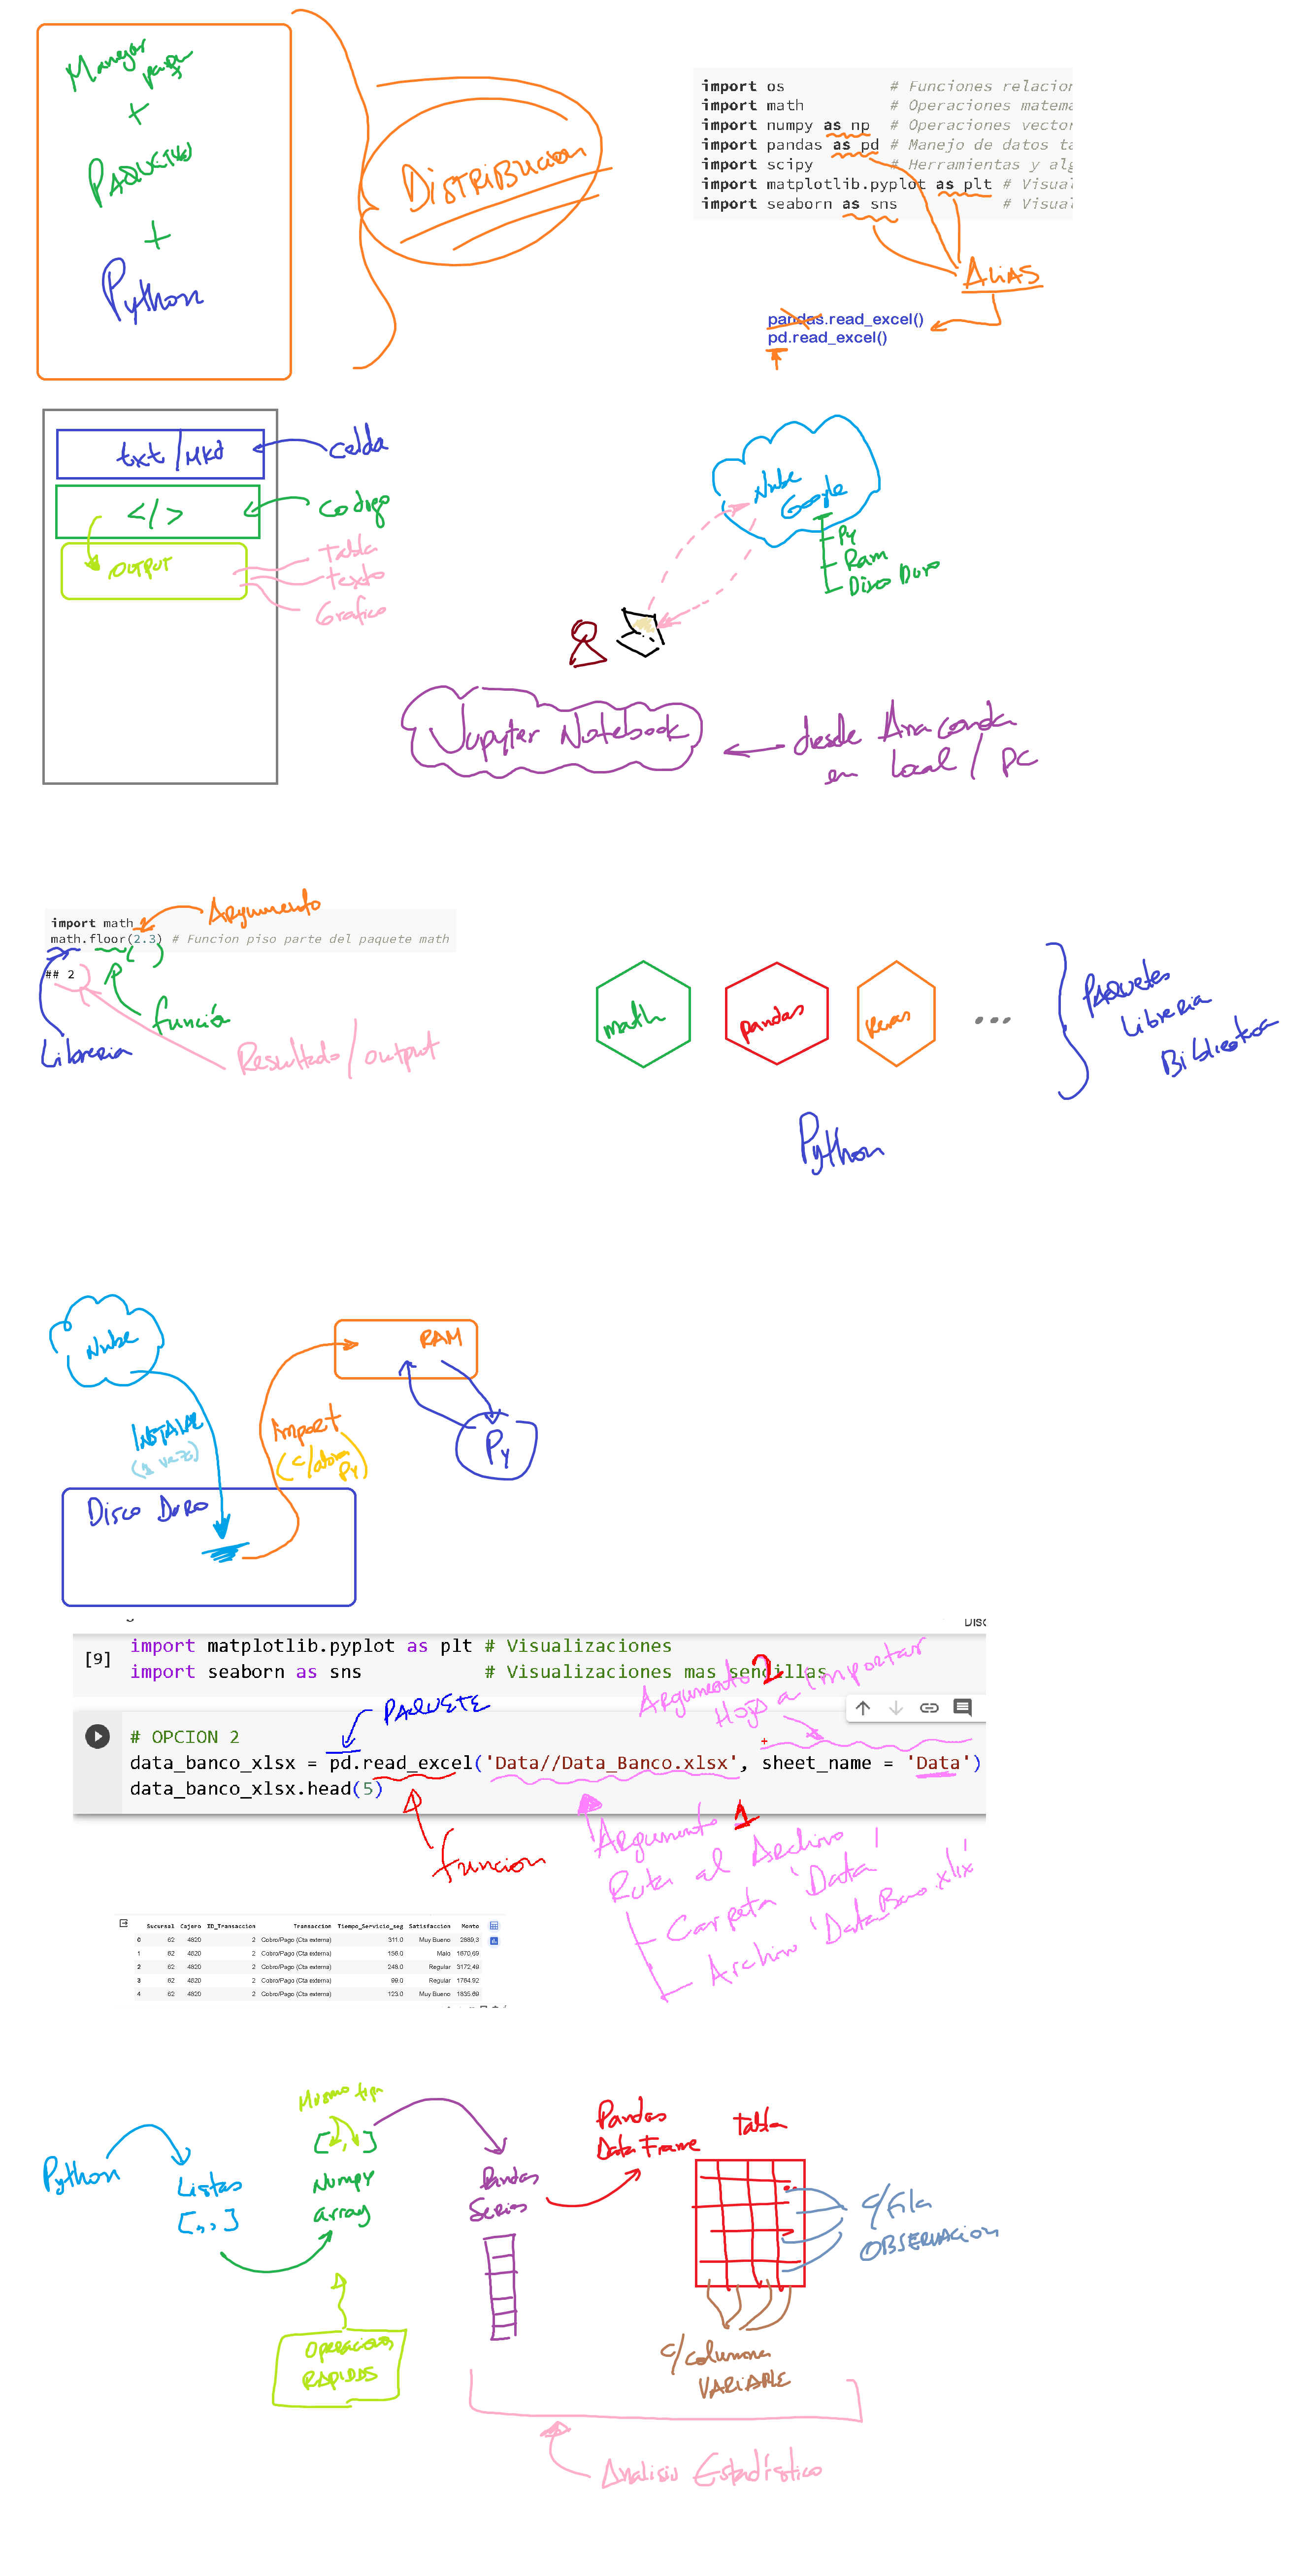 Manejar
+
PAQUETES
+
Python
DISTRIBUCION
import os # Funciones relacion
import math # Operaciones matema
import numpy as np # Operaciones vector
import pandas as pd # Manejo de datos ta
import scipy # Herramientas y alg
import matplotlib.pyplot as plt # Visual
import seaborn as sns # Visual
ALiAS
pandas.read_excel()
pd.read_excel()
txt/MKd
Celda
</>
Codigo
OUTPUT
Tabla
texto
Grafico
Nube
Google
Py
Ram
Disco Duro
Jupyter Notebook
desde Anaconda
en Local / PC
Argumento
import math
math.floor(2.3) # Funcion piso parte del paquete math
## 2
función
Libreria
Resultado/output
math
pandas
keras
...
PAQUETES
Libreria
Biblioteca
Python
Nube
RAM
INSTALAR
(1 vez)
import
(c/abra
Py)
Py
Disco Duro
[9]
import matplotlib.pyplot as plt # Visualizaciones
import seaborn as sns # Visualizaciones mas sencillas
Argumento 2
Hoja a importar
PAQUETE
# OPCION 2
data_banco_xlsx = pd.read_excel('Data//Data_Banco.xlsx', sheet_name = 'Data')
data_banco_xlsx.head(5)
funcion
Argumento 1
Ruta al Archivo
Carpeta 'Data'
Archivo 'Data_Banco.xlsx'
Sucursal Cajero ID_Transaccion Transaccion Tiempo_Servicio_seg Satisfaccion Monto
0 62 4820 2 Cobro/Pago (Cta externa) 311.0 Muy Bueno 2889,3
1 62 4820 2 Cobro/Pago (Cta externa) 156.0 Malo 1670,69
2 62 4820 2 Cobro/Pago (Cta externa) 248.0 Regular 3172,49
3 62 4820 2 Cobro/Pago (Cta externa) 99.0 Regular 1764.92
4 62 4820 2 Cobro/Pago (Cta externa) 123.0 Muy Bueno 1835.69
Python
Listas
[,,]
Mismo tipo
[,]
Numpy
array
Operaciones
RAPIDAS
Pandas
Series
Pandas
Data Frame
tabla
c/Fila
OBSERVACION
c/columna
VARIABLE
Analisis Estadístico